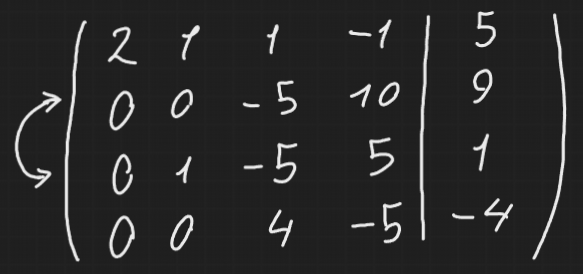 2 1 1 -1 | 5
0 0 -5 10 | 9
0 1 -5 5 | 1
0 0 4 -5 | -4